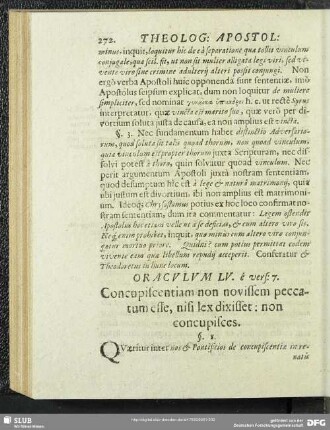 272. THEOLOG: APOSTOL:
minus, inquit, loquitur hic de eâ separatione quæ tollit vinculum
conjugale, quâ scil. fit, ut non sit mulier alligata legi viri, sed ve-
niente viro sine crimine adulterij alteri possit conjungi. Non
ergò verba Apostoli huic opponenda sunt sententiæ, imò
Apostolus seipsum explicat, dum non loquitur de muliere
simpliciter, sed nominat h. e. ut rectè Syrus
interpretatur, quæ vincta est marito suo, quæ verò per di-
vortium soluta justa de causâ, est non amplius est vincta.
§. 3. Nec fundamentum habet distinctio Adversario-
rum, quod soluta sit talis quoad thorum, non quoad vinculum;
quia vinculum est propter thorum juxta Scripturam, nec dis-
solvi potest à thoro, quin solvatur quoad vinculum. Nec
perit argumentum Apostoli juxtà nostram sententiam,
quod desumptum hîc est à lege & naturâ matrimonij, quia
ubi justum est divortium, ibi non amplius est matrimoni-
um. Ideoq; Chrysostomus potius ex hoc loco confirmat no-
stram sententiam, dum ita commentatur: Legem ostendit
Apostolus
Neq; enim prohibet, inquit, quo minus cum altero viro conjun-
gatur mortuo priore. Quidni? cum potius permittat eadem
vivente etiam qua libellum repudij acceperit. Conferatur &
Theodoretus in hunc locum.
ORACULUM LV. è vers: 7.
Concupiscentiam non novissem pecca-
tum esse, nisi lex dixisset: non
concupisces.
§. 1.
QUæritur inter nos & Pontificios de concupiscentia in re-
natis
SLUB
DFG